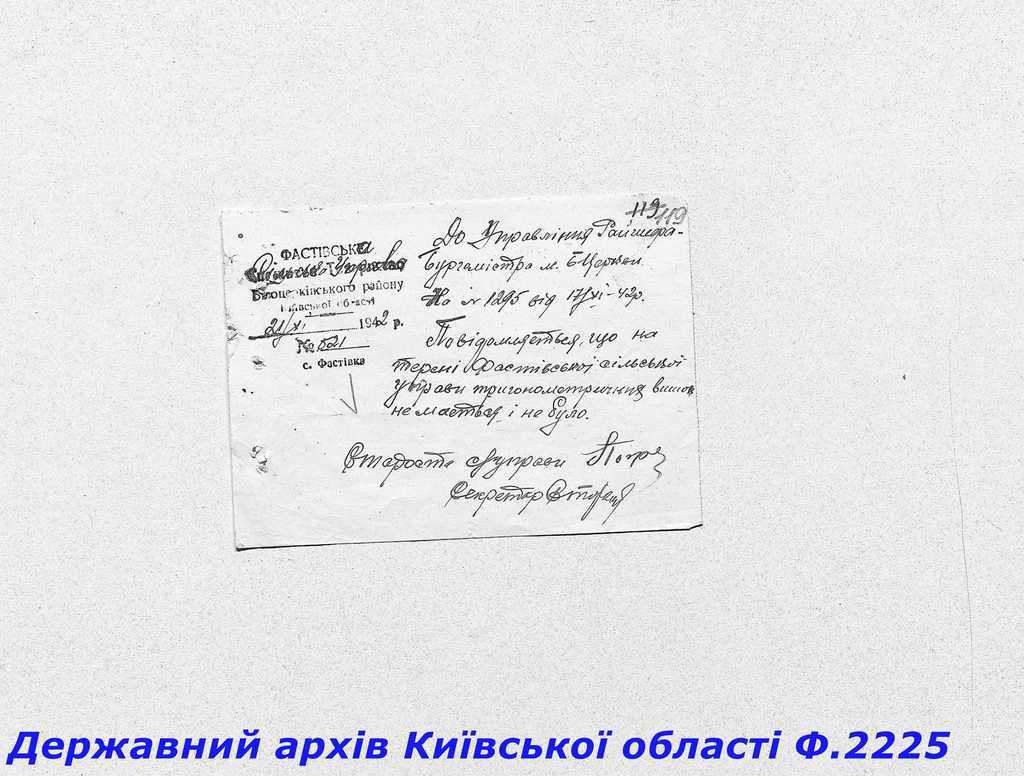 119 119
ФАСТІВСЬКА
Сільська Управа
Білоцерківського району
Київської області
21/XI 1942 р.
№ 521
с. Фастівка
До Управління Райшефа-
Бургамістра м. Б-Церкви.
На № 1295 від 17/XI-42р.
Повідомляється, що на
терені Фастівської сільської
управи тригонометричних вишок
не мається і не було.
Староста с/управи
Секретар
Державний архів Київської області Ф.2225